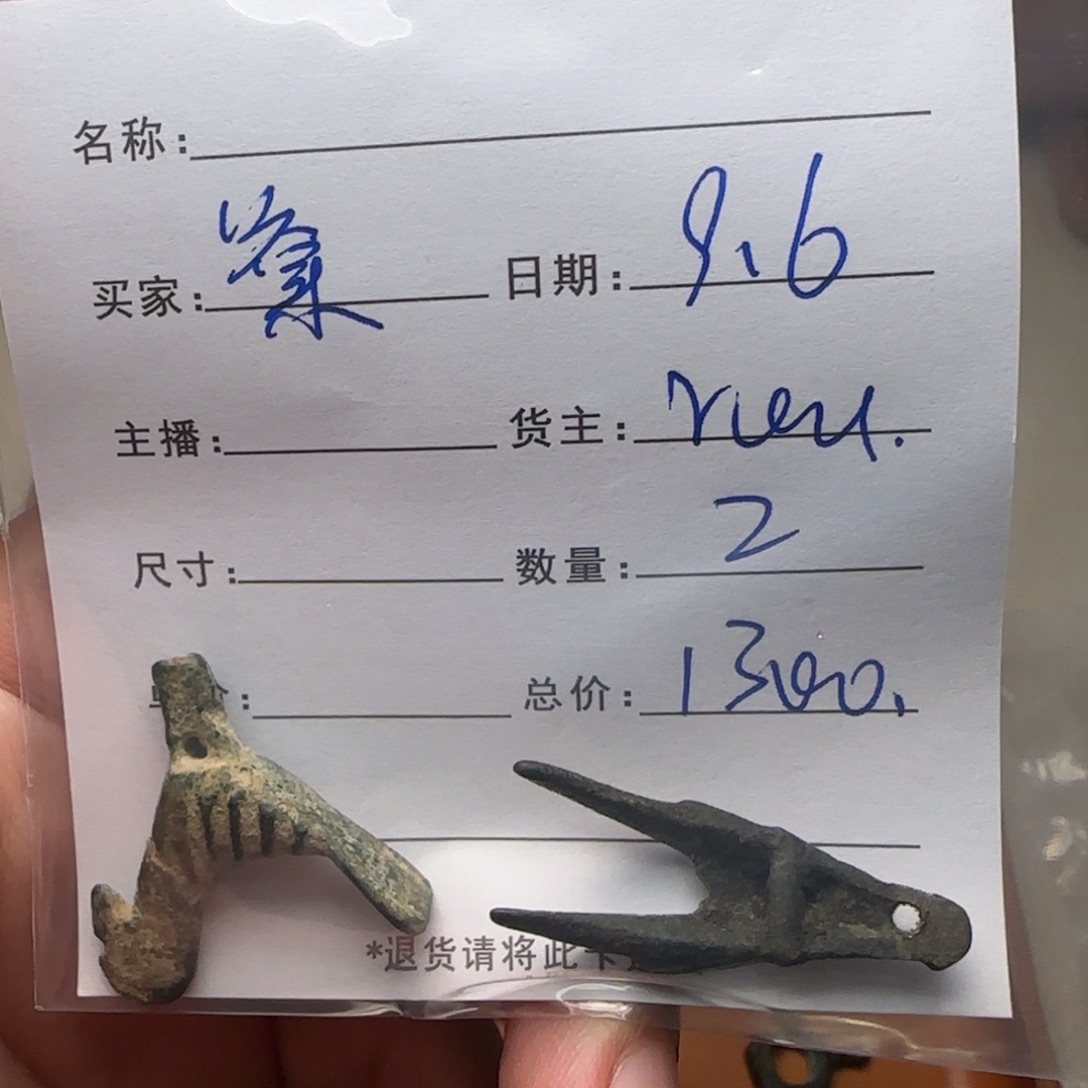 名称:
买家: 日期: 9.6
主播: 货主:
尺寸: 数量: 2
价: 总价: 1300.
*退货请将此卡